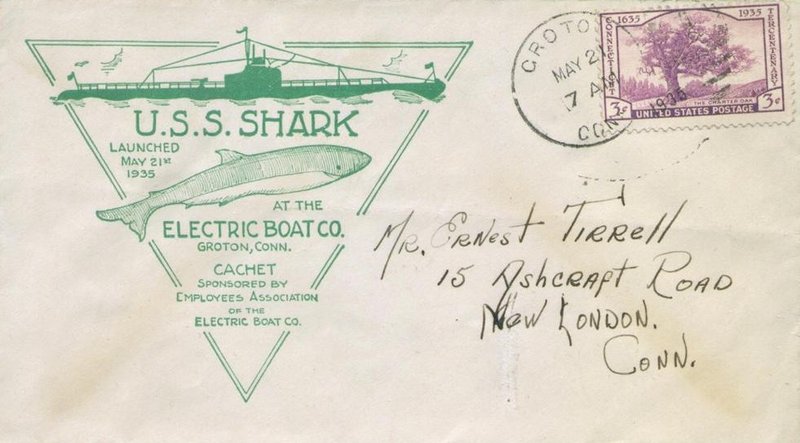 U.S.S. SHARK
LAUNCHED
MAY 21st
1935
AT THE
ELECTRIC BOAT CO.
GROTON, CONN.
CACHET
SPONSORED BY
EMPLOYEES ASSOCIATION
OF THE
ELECTRIC BOAT CO.
GROTON
MAY 21
7 AM
1935
CONN
1635 1935
CONNECTICUT
TERCENTENARY
THE CHARTER OAK
3¢ 3¢
UNITED STATES POSTAGE
Mr. Ernest Tirrell
15 Ashcraft Road
New London.
Conn.